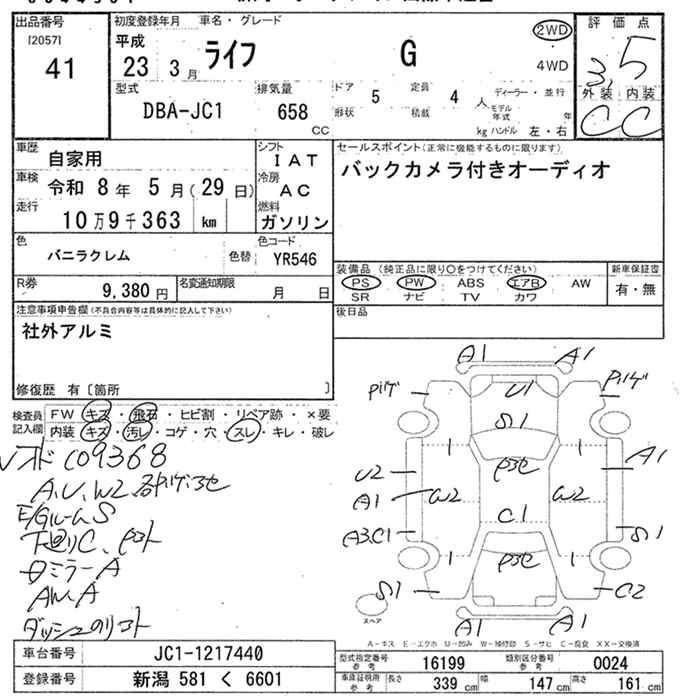 出品番号 初度登録年月 車名・グレード 評価点
[2057] 平成 ライフ G 2WD 3,5
41 23 3月 4WD 外装 内装
型式 排気量 ドア 5 定員 4 人 ディーラー・並行 C C
DBA-JC1 658 CC 形状 積載 kg モデル年式 年
ハンドル 左・右
車歴 自家用 シフト IAT セールスポイント(正常に機能するものに限ります)
車検 令和 8年 5月(29日) 冷房 AC バックカメラ付きオーディオ
走行 10万9千363 km 燃料 ガソリン
色 バニラクレム 色替 色コード YR546
装備品(純正品に限り〇をつけてください) 新車保証書
R券 9,380円 名変通知期限 月 日 PS PW ABS エアB AW 有・無
SR ナビ TV カワ
注意事項申告欄(不具合内容等は具体的に記入して下さい) 後日品
社外アルミ
修復歴 有〔箇所 〕
検査員記入欄 FW キズ・飛石・ヒビ割・リペア跡・×要
内装 キズ・汚レ・コゲ・穴・スレ・キレ・破レ
C09368
A、U、W2、
E/Gルーム S
下回りC、
ミラーA
AW、A
A1 A1
U1
S1
U2 A1
A1 W2 W2
C1
A3.C1 S1
S1 C2
A1 A1
スペア
A-キズ E-エクボ U-凹み W-補修跡 S-サビ C-腐食 XX-交換済
車台番号 JC1-1217440 型式指定番号 参考 16199 類別区分番号 参考 0024
登録番号 新潟 581 く 6601 車庫証明用 参考 長さ 339 cm 幅 147 cm 高さ 161 cm